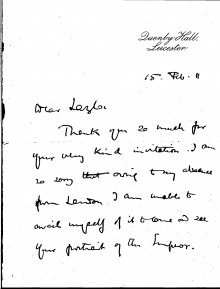 Quenby Hall,
Leicester
15. Feb. 11
Dear Laszlo.
Thank you so much for
your very kind invitation. I am
so sorry that owing to my absence
from London. I am unable to
avail myself of it to come & see
your portrait of the Emperor.